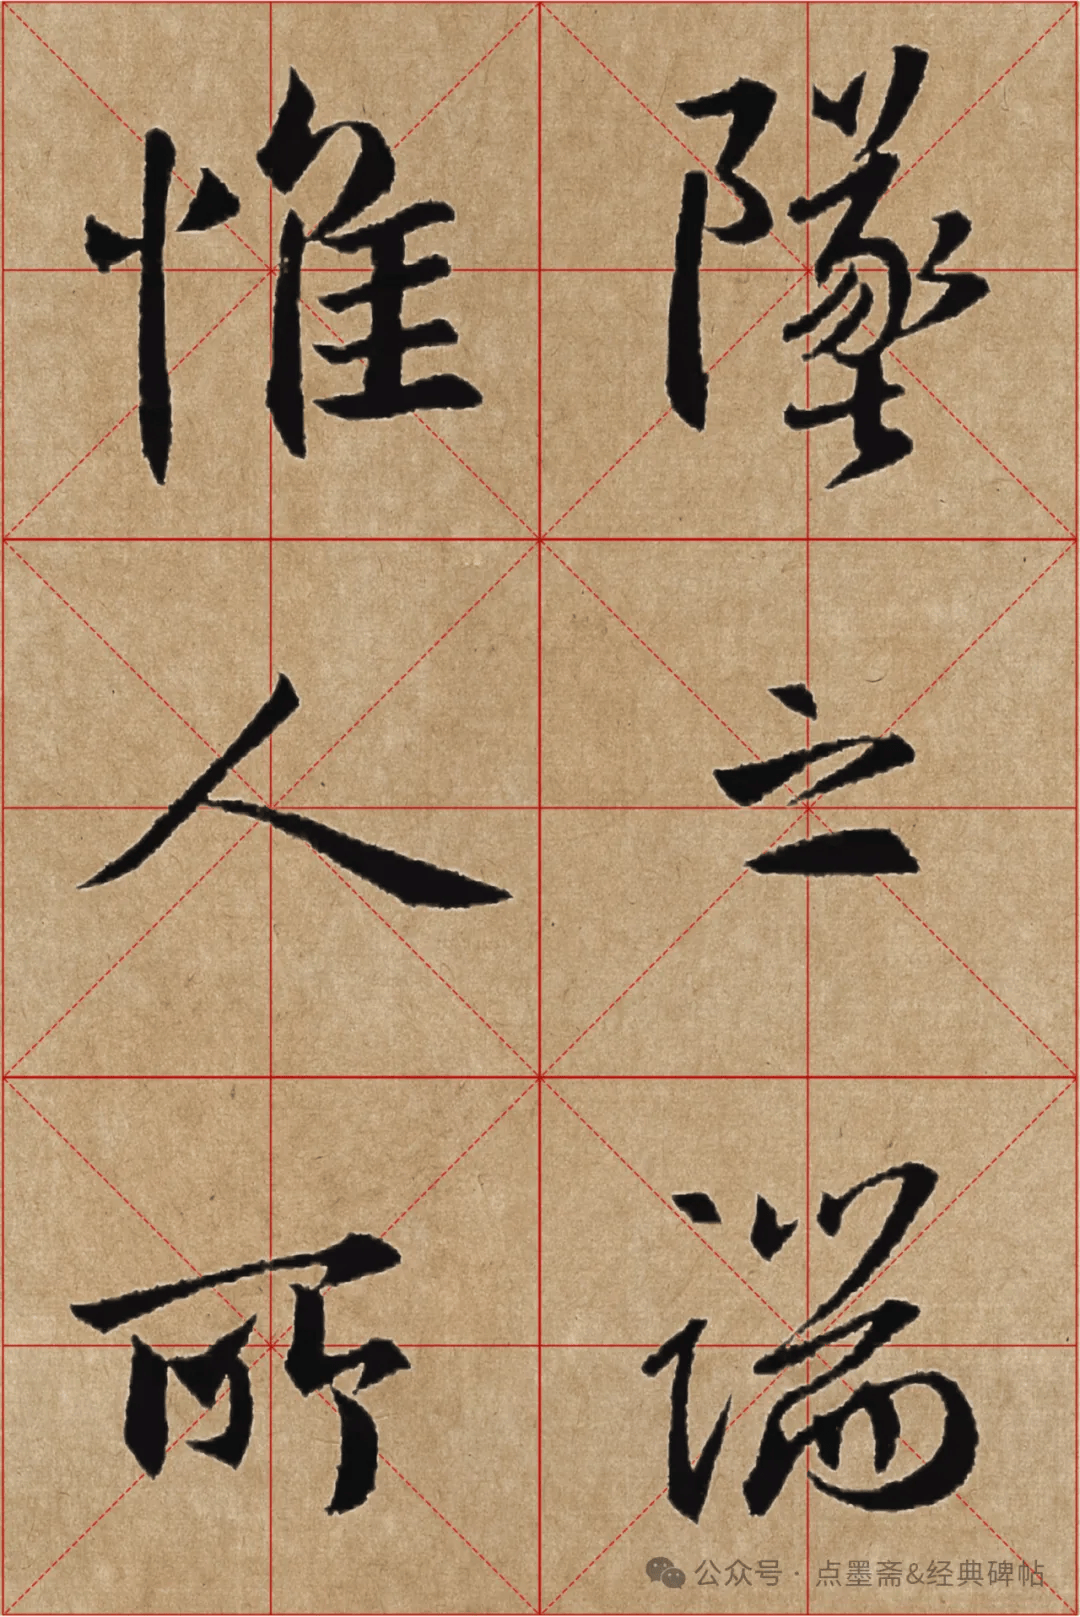 墜之湍
惟人所
公众号 · 点墨斋&经典碑帖